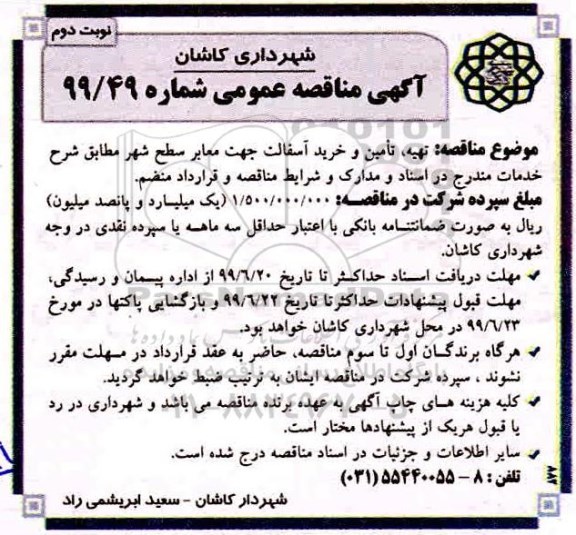 نوبت دوم
شهرداری کاشان
آگهی مناقصه عمومی شماره ۹۹/۴۹
موضوع مناقصه: تهیه، تأمین و خرید آسفالت جهت معابر سطح شهر مطابق شرح
خدمات مندرج در اسناد و مدارک و شرایط مناقصه و قرارداد منضم.
مبلغ سپرده شرکت در مناقصه: ۱/۵۰۰/۰۰۰/۰۰۰ (یک میلیارد و پانصد میلیون)
ریال به صورت ضمانتنامه بانکی با اعتبار حداقل سه ماهه یا سپرده نقدی در وجه
شهرداری کاشان.
✓ مهلت دریافت اسناد حداکثر تا تاریخ ۹۹/۶/۲۰ از اداره پیمان و رسیدگی،
مهلت قبول پیشنهادات حداکثر تا تاریخ ۹۹/۶/۲۲ و بازگشایی پاکتها در مورخ
۹۹/۶/۲۳ در محل شهرداری کاشان خواهد بود.
✓ هرگاه برندگان اول تا سوم مناقصه، حاضر به عقد قرارداد در مهلت مقرر
نشوند ، سپرده شرکت در مناقصه ایشان به ترتیب ضبط خواهد گردید.
✓ کلیه هزینه های چاپ آگهی به عهده برنده مناقصه می باشد و شهرداری در رد
یا قبول هریک از پیشنهادها مختار است.
✓ سایر اطلاعات و جزئیات در اسناد مناقصه درج شده است.
تلفن : ۸ - ۵۵۴۴۰۰۵۵ (۰۳۱)
شهردار کاشان - سعید ابریشمی راد
۰۲۱-۸۸۳۴۹۶۷۰-۵